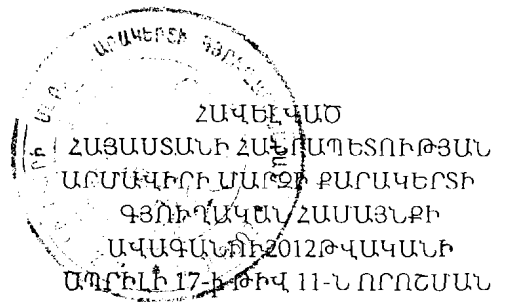 ՀԱՎԵԼՎԱԾ
ՀԱՅԱՍՏԱՆԻ ՀԱՆՐԱՊԵՏՈՒԹՅԱՆ
ԱՐՄԱՎԻՐԻ ՄԱՐԶԻ ՔԱՐԱԿԵՐՏԻ
ԳՅՈՒՂԱԿԱՆ ՀԱՄԱՅՆՔԻ
ԱՎԱԳԱՆՈՒ 2012ԹՎԱԿԱՆԻ
ԱՊՐԻԼԻ 17-Ի ԹԻՎ 11-Ն ՈՐՈՇՄԱՆ